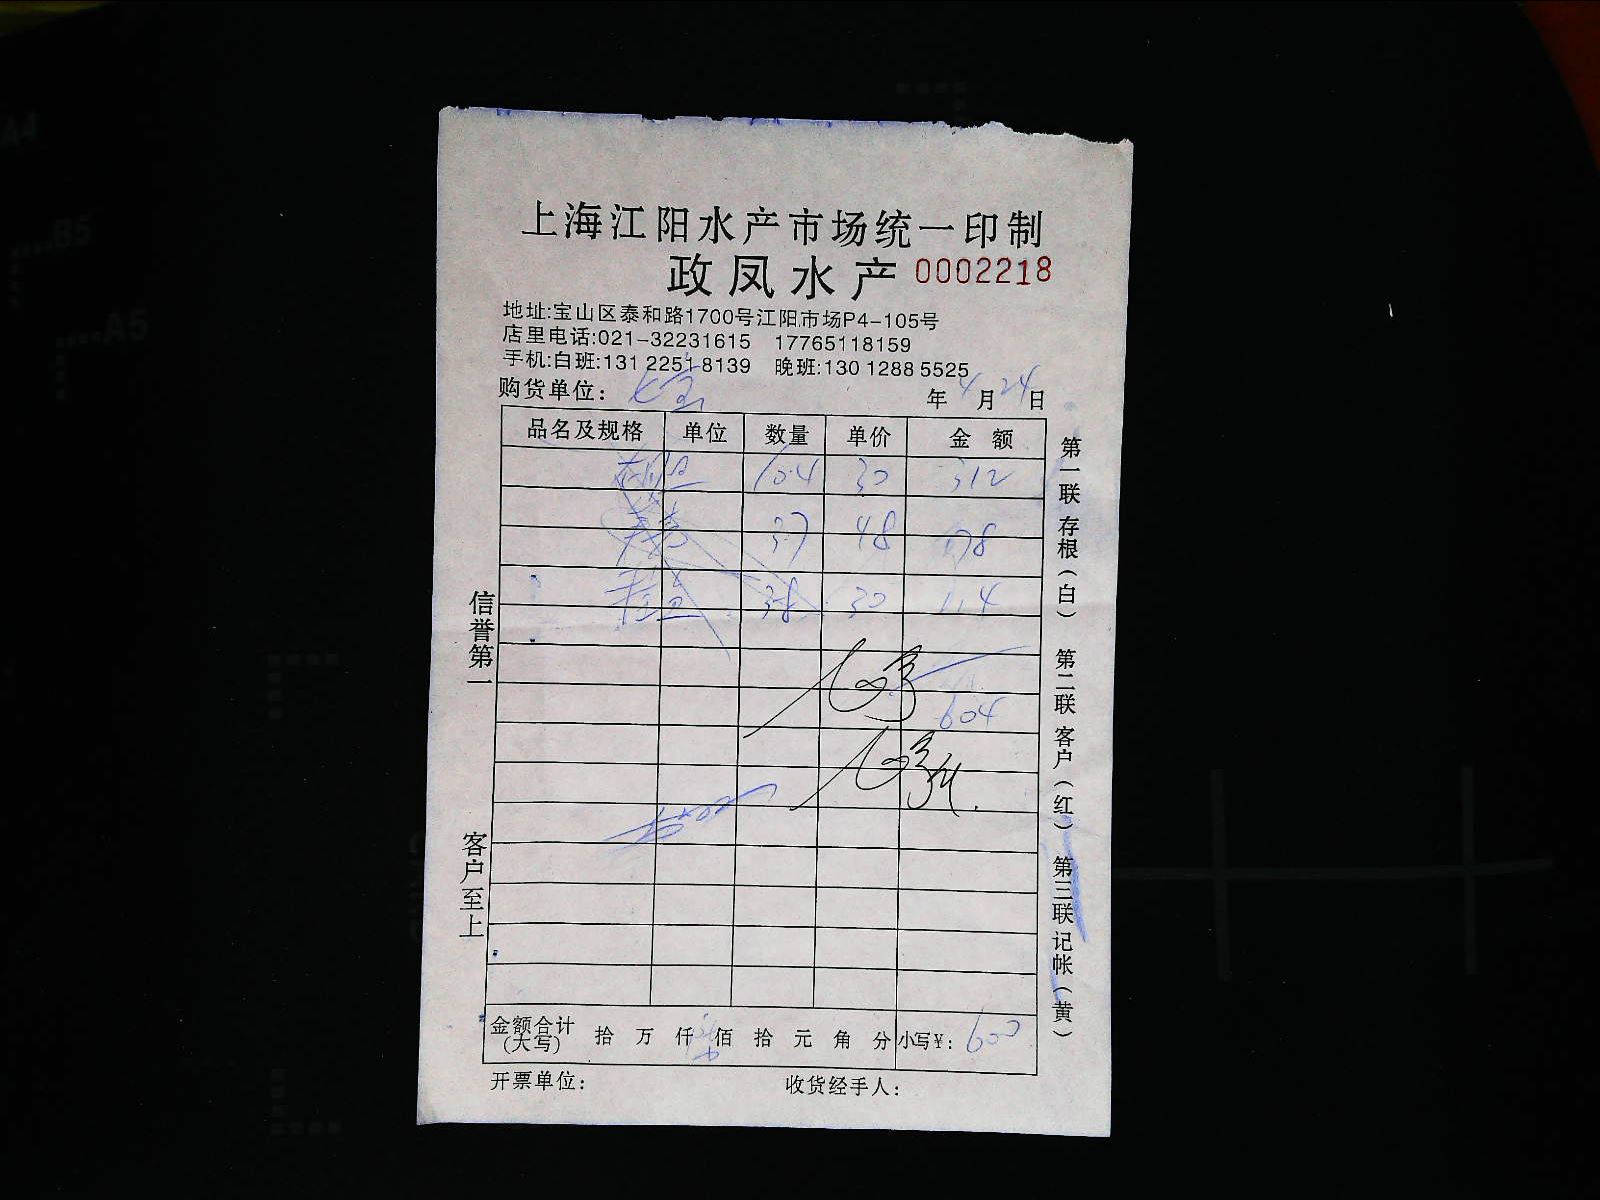 上海江阳水产市场统一印制
政凤水产 0002218
地址:宝山区泰和路1700号江阳市场P4-105号
店里电话:021-32231615 17765118159
手机:白班:131 2251 8139 晚班:130 1288 5525
购货单位: 年 4 月 24 日
品名及规格 单位 数量 单价 金 额
10.4 30 312
3.7 48 178
3.8 30 114
604
金额合计(大写) 拾 万 仟 佰 拾 元 角 分 小写¥: 600
开票单位: 收货经手人:
信誉第一
客户至上
第一联 存根(白) 第二联 客户(红) 第三联 记帐(黄)